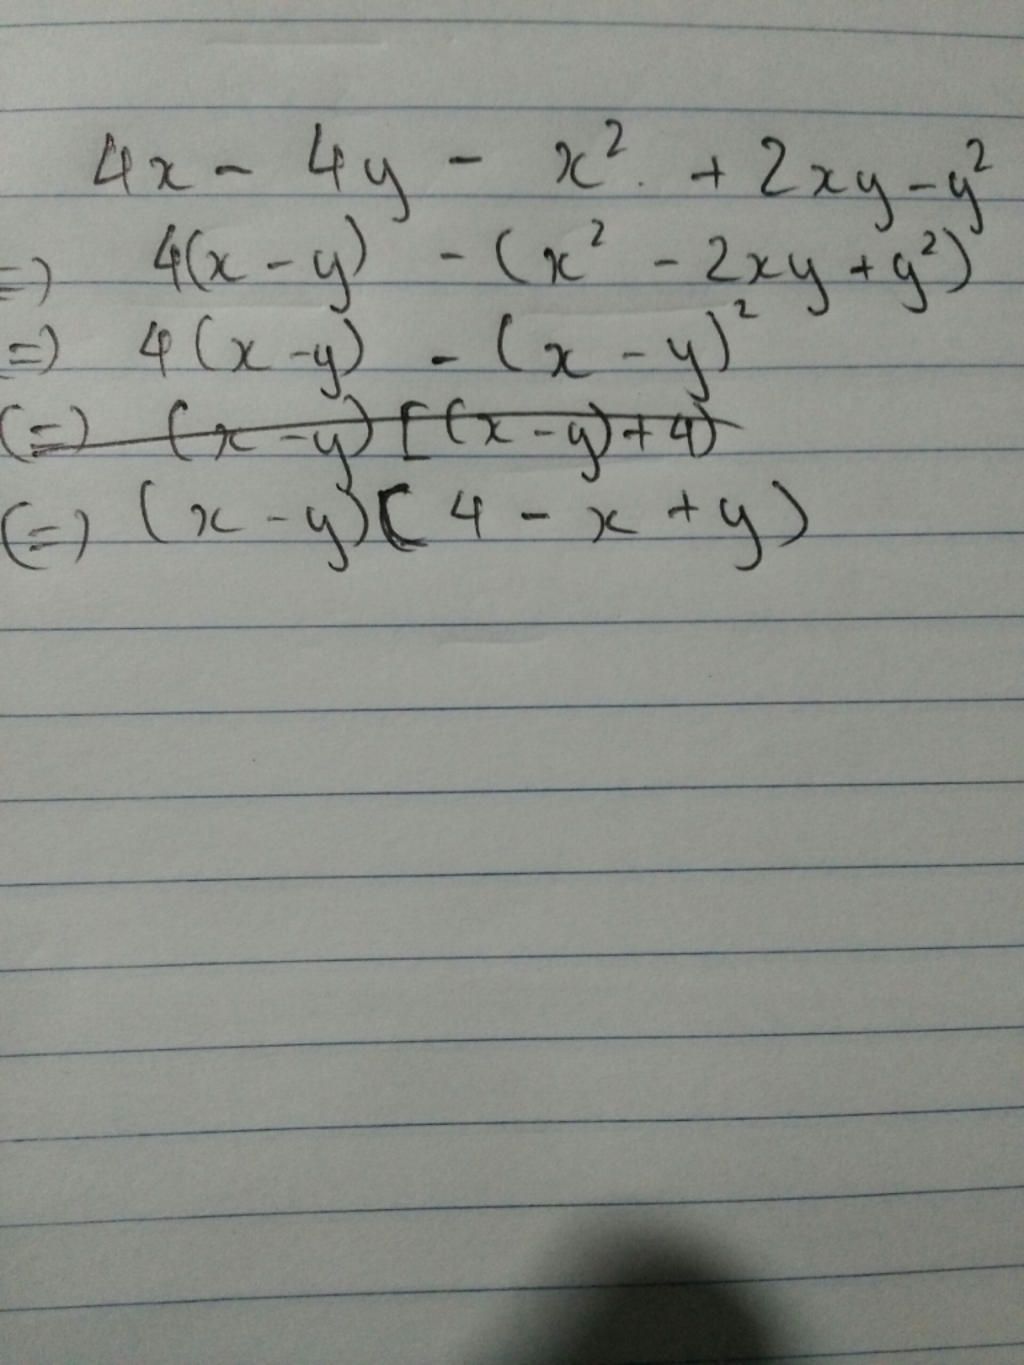 4x - 4y - x² + 2xy - y²
=) 4(x - y) - (x² - 2xy + y²)
=) 4(x - y) - (x - y)²
(=) (x - y)[(x - y) + 4)
(=) (x - y)(4 - x + y)